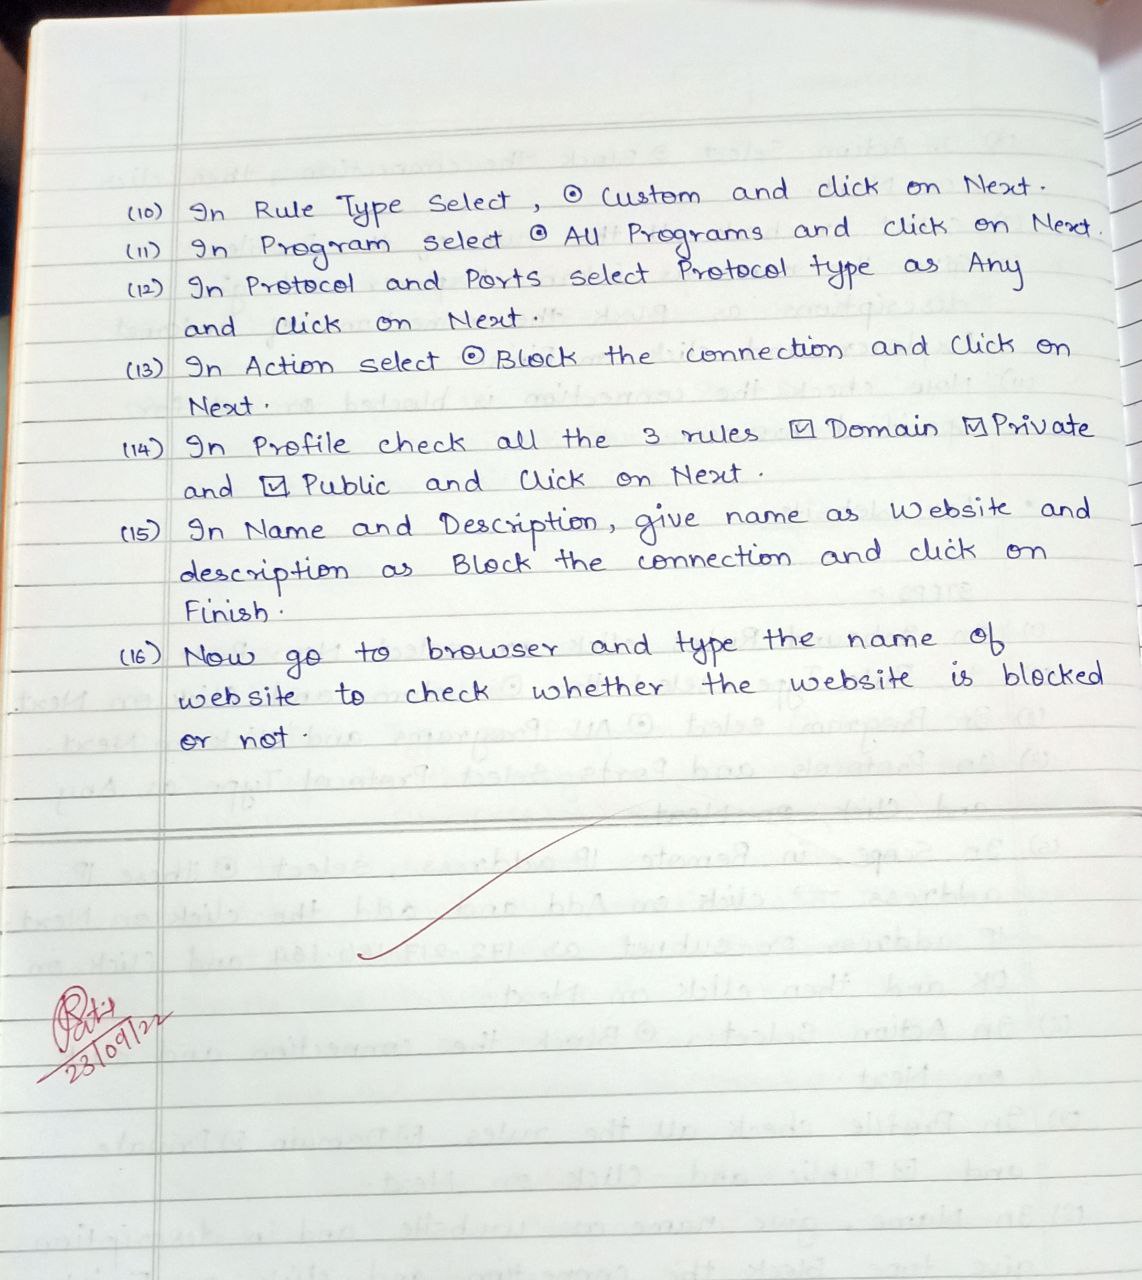 (10) In Rule Type Select, ⦿ Custom and click on Next.
(11) In Program select ⦿ All Programs and click on Next.
(12) In Protocol and Ports select Protocol type as Any
and click on Next.
(13) In Action select ⦿ Block the connection and Click on
Next.
(14) In Profile check all the 3 rules ☑ Domain ☑ Private
and ☑ Public and Click on Next.
(15) In Name and Description, give name as Website and
description as Block the connection and click on
Finish.
(16) Now go to browser and type the name of
website to check whether the website is blocked
or not.
23/09/22